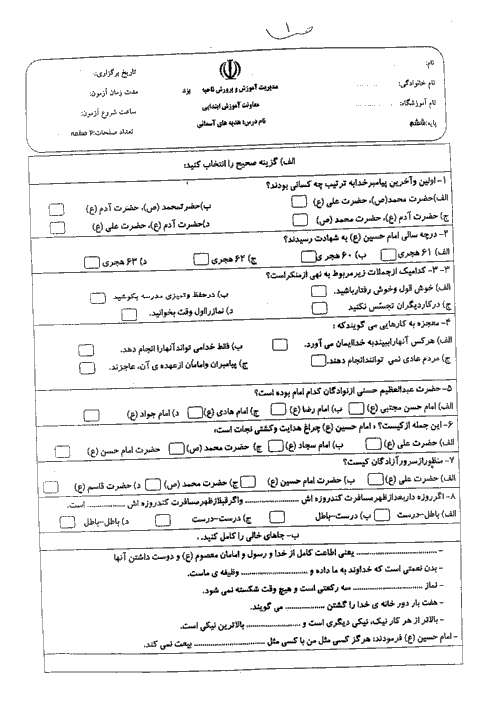 ص ۱
نام:
نام خانوادگی: ..........
نام آموزشگاه: ..........
پایه: ششم
مدیریت آموزش و پرورش ناحیه یزد
معاونت آموزش ابتدایی
نام درس: هدیه های آسمانی
تاریخ برگزاری:
مدت زمان آزمون:
ساعت شروع آزمون:
تعداد صفحات: ۲ صفحه
الف) گزینه صحیح را انتخاب کنید:
۱- اولین وآخرین پیامبرخدابه ترتیب چه کسانی بودند؟
الف) حضرت محمد(ص)، حضرت علی (ع) ب)حضرتمحمد (ص)، حضرت آدم (ع)
ج) حضرت آدم (ع)، حضرت محمد (ص) د)حضرت آدم (ع)، حضرت علی (ع)
۲- درچه سالی امام حسین (ع) به شهادت رسیدند؟
الف) ۶۱ هجری ب) ۶۰ هجری ج) ۶۲ هجری د) ۶۳ هجری
۳- ۳- کدامیک ازجملات زیرمربوط به نهی ازمنکراست؟
الف) خوش قول وخوش رفتارباشید. ب) درحفظ وتمیزی مدرسه بکوشید
ج) درکاردیگران تجسّس نکنید د) نمازرااول وقت بخوانید.
۴- معجزه به کارهایی می گویندکه :
الف) هرکس آنهاراببیندبه خداایمان می آورد. ب) فقط خدامی تواندآنهارا انجام دهد.
ج) مردم عادی نمی توانندانجام دهند. ج) پیامبران وامامان ازعهده ی آن، عاجزند.
۵- حضرت عبدالعظیم حسنی ازنوادگان کدام امام بوده است؟
الف) امام حسن مجتبی (ع) ب) امام رضا (ع) ج) امام هادی (ع) د) امام جواد (ع)
۶- این جمله ازکیست؟ « امام حسین (ع) چراغ هدایت وکشتی نجات است»
الف) حضرت علی (ع) ب) امام سجاد (ع) ج) حضرت محمد (ص) حضرت امام حسن (ع)
۷- منظورازسرورآزادگان کیست؟
الف) حضرت علی (ع) ب) حضرت امام حسین (ع) ج) حضرت محمد (ص) د) حضرت قاسم (ع)
۸- اگرروزه داربعدازظهرمسافرت کندروزه اش .................... واگرقبلازظهرمسافرت کندروزه اش .................... است.
الف) باطل-درست ب) درست-باطل ج) درست-درست د) باطل-باطل
ب- جاهای خالی را کامل کنید .
- .................... یعنی اطاعت کامل از خدا و رسول و امامان معصوم (ع) و دوست داشتن آنها
- بدن نعمتی است که خداوند به ما داده و .................... وظیفه ی ماست.
- نماز .................... سه رکعتی است و هیچ وقت شکسته نمی شود.
- هفت بار دور خانه ی خدا را گشتن .............. می گویند.
- بالاتر از هر کار نیک، نیکی دیگری است و .................... بالاترین نیکی است.
- امام حسین (ع) فرمودند: هرگز کسی مثل من با کسی مثل .................... بیعت نمی کند.